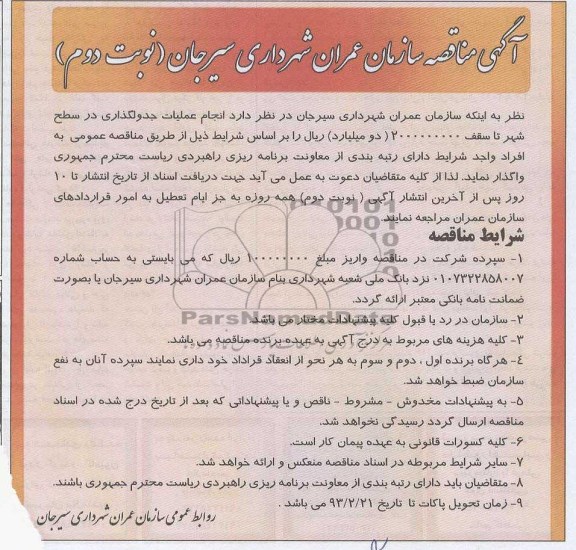 آگهی مناقصه سازمان عمران شهرداری سیرجان (نوبت دوم)
نظر به اینکه سازمان عمران شهرداری سیرجان در نظر دارد انجام عملیات جدولگذاری در سطح
شهر تا سقف ۲۰۰۰۰۰۰۰۰۰ ( دو میلیارد) ریال را بر اساس شرایط ذیل از طریق مناقصه عمومی به
افراد واجد شرایط دارای رتبه بندی از معاونت برنامه ریزی راهبردی ریاست محترم جمهوری
واگذار نماید. لذا از کلیه متقاضیان دعوت به عمل می آید جهت دریافت اسناد از تاریخ انتشار تا ۱۰
روز پس از آخرین انتشار آگهی ( نوبت دوم) همه روزه به جز ایام تعطیل به امور قراردادهای
سازمان عمران مراجعه نمایند.
شرایط مناقصه
۱- سپرده شرکت در مناقصه واریز مبلغ ۱۰۰۰۰۰۰۰۰ ریال که می بایستی به حساب شماره
۰۱۰۷۳۲۲۸۵۸۰۰۷ نزد بانک ملی شعبه شهرداری بنام سازمان عمران شهرداری سیرجان یا بصورت
ضمانت نامه بانکی معتبر ارائه گردد.
۲- سازمان در رد یا قبول کلیه پیشنهادات مختار می باشد.
ParsNamadData
۳- کلیه هزینه های مربوط به درج آگهی به عهده برنده مناقصه می باشد.
٤- هرگاه برنده اول ، دوم و سوم به هر نحو از انعقاد قراداد خود داری نمایند سپرده آنان به نفع
سازمان ضبط خواهد شد.
۵- به پیشنهادات مخدوش - مشروط - ناقص و یا پیشنهاداتی که بعد از تاریخ درج شده در اسناد
مناقصه ارسال گردد رسیدگی نخواهد شد.
۶- کلیه کسورات قانونی به عهده پیمان کار است.
۷- سایر شرایط مربوطه در اسناد مناقصه منعکس و ارائه خواهد شد.
۸- متقاضیان باید دارای رتبه بندی از معاونت برنامه ریزی راهبردی ریاست محترم جمهوری باشند.
۹- زمان تحویل پاکات تا تاریخ ۹۳/۲/۲۱ می باشد .
روابط عمومی سازمان عمران شهرداری سیرجان